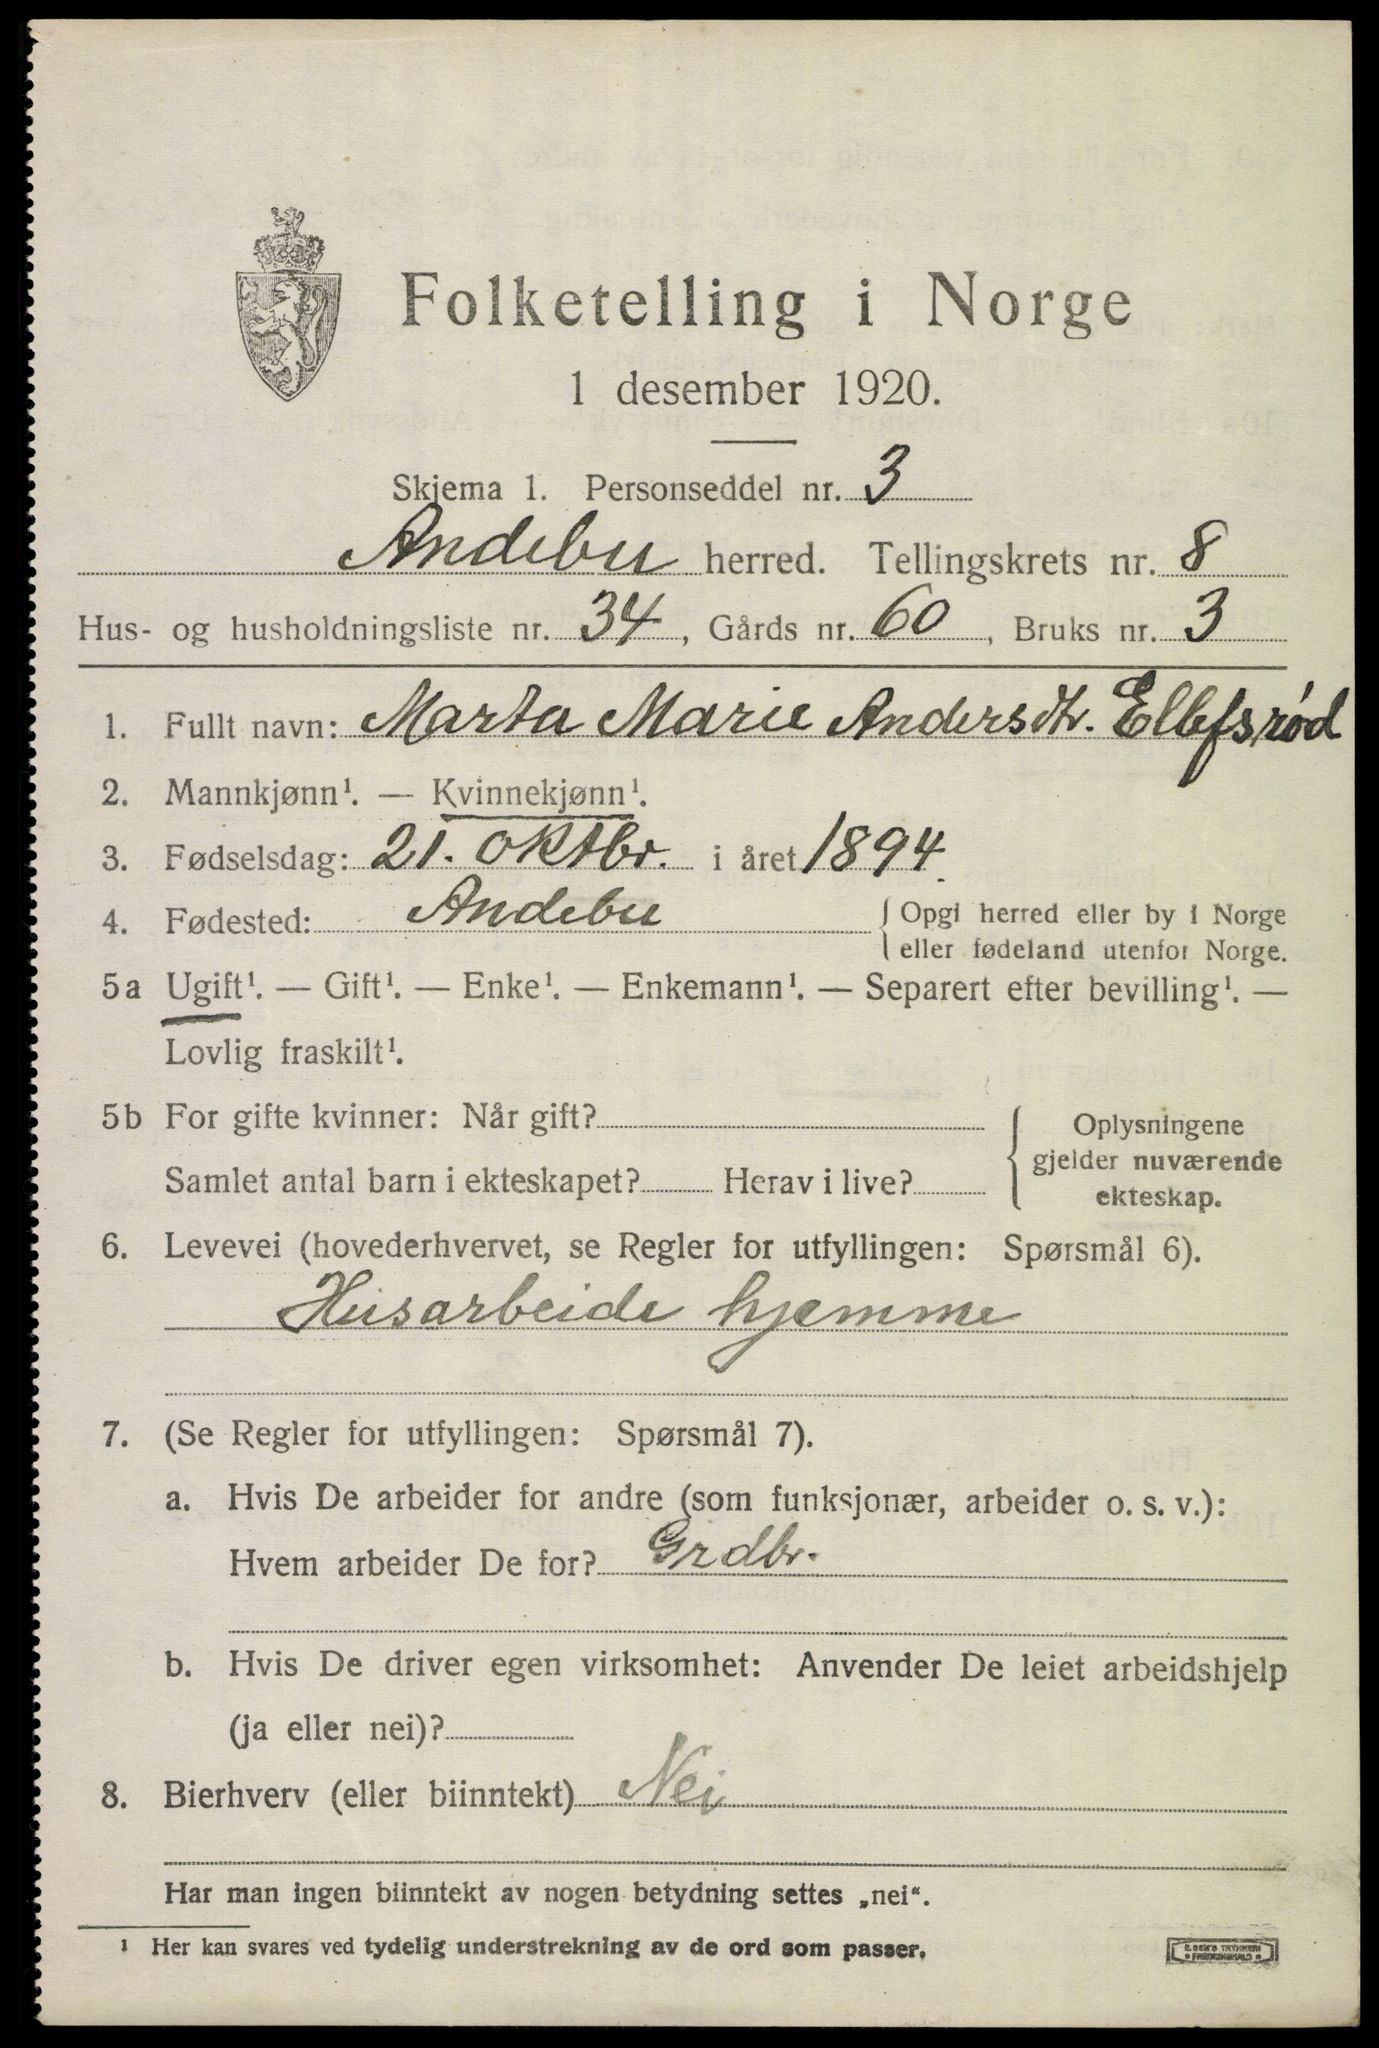 Folketelling i Norge
1 desember 1920.
Skjema 1. Personseddel nr. 3
Andebu herred. Tellingskrets nr. 8
Hus- og husholdningsliste nr. 34, Gårds nr. 60, Bruks nr. 3
1. Fullt navn: Marta Marie Andersdtr. Ellefsrød
2. Mannkjønn¹. — Kvinnekjønn¹.
3. Fødselsdag: 21. oktbr. i året 1894.
4. Fødested: Andebu { Opgi herred eller by i Norge
eller fødeland utenfor Norge.
5a Ugift¹. — Gift¹. — Enke¹. — Enkemann¹. — Separert efter bevilling¹. —
Lovlig fraskilt¹.
5b For gifte kvinner: Når gift?
Samlet antal barn i ekteskapet? Herav i live?
{ Oplysningene
gjelder nuværende
ekteskap.
6. Levevei (hovederhvervet, se Regler for utfyllingen: Spørsmål 6).
Husarbeide hjemme
7. (Se Regler for utfyllingen: Spørsmål 7).
a. Hvis De arbeider for andre (som funksjonær, arbeider o. s. v.):
Hvem arbeider De for? Grdbr.
b. Hvis De driver egen virksomhet: Anvender De leiet arbeidshjelp
(ja eller nei)?
8. Bierhverv (eller biinntekt) Nei
Har man ingen biinntekt av nogen betydning settes „nei“.
¹ Her kan svares ved tydelig understrekning av de ord som passer.